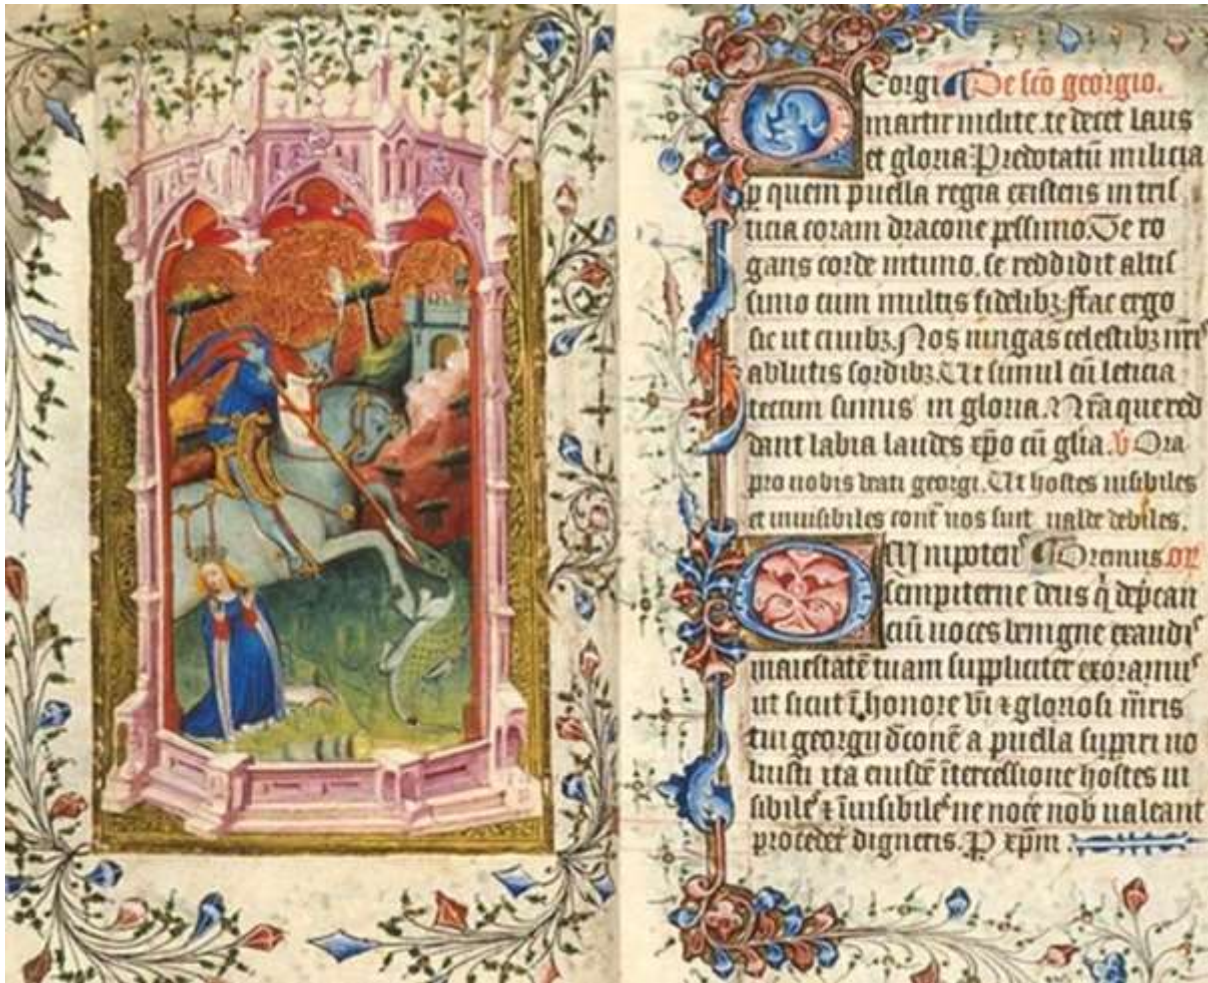 Georgi De sc̄o georgio.
martir inclite. te decet laus
et gloria Predotatū milicia
ꝑ quem puella regia existens in tris
ticia coram dracone pessimo. Te ro
gans corde intimo. se reddidit altis
simo cum multis fidelibꝫ ffac ergo
sic ut ciuibꝫ Nos iungas celestibꝫ nr̄is
ablutis sordibꝫ. Ut simul cū leticia
tecum simus in gloria. Nr̄aque red
dant labia laudes xp̄o cū gl̄ia. v̄ Ora
pro nobis beati georgi. Ut hostes uisibiles
et inuisibiles cont̄ nos sint ualde debiles.
Omnipotens Oremus. or̄
sempiterne deus q̇ dep̄can
ciū uoces benigne exaudis
maiestatē tuam suppliciter exoramus
ut sicut ī honore bt̄i ⁊ gloriosi mr̄is
tui georgij dͣconē a puella suꝑari uo
luisti ita eiusdē ītercessione hostes ui
sibiles ⁊ īuisibiles ne nocē nob̄ ualeant
procedere digneris. P xp̄m